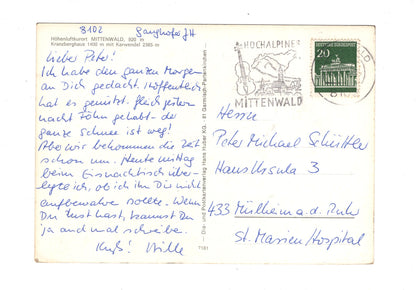 8102 Ganghofer JH
Höhenluftkurort MITTENWALD, 920 m
Kranzberghaus 1400 m mit Karwendel 2385 m
Lieber Peter!
Ich habe den ganzen Morgen
an Dich gedacht. Hoffentlich
hat es genützt.
nacht Föhn gehabt - der
ganze Schnee ist weg!
Aber wir bekommen die Zeit
schon um. Heute mittag
beim Eisnachtisch über-
legte ich, ob ich ihn Dir nicht
aufbewahre sollte. Wenn
Du Lust hast, kannst Du
ja auch mal schreibe.
HOCHALPINER
MITTENWALD
DEUTSCHE BUNDESPOST
20
Herrn
Peter Michael
Haus Ursula 3
433 Mülheim a.d. Ruhr
St. Marien Hospital
Druck- und Postkartenverlag Hans Huber KG. · 81 Garmisch-Partenkirchen
7181